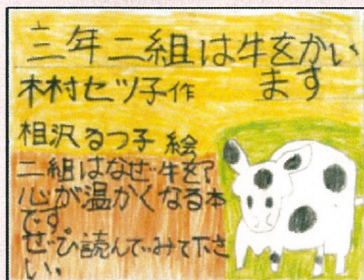 三年二組は牛をかい
ます
木村セツ子作
相沢るつ子 絵
二組はなぜ牛を?
心が温かくなる本
です。
ぜひ読んでみて下さ
い。